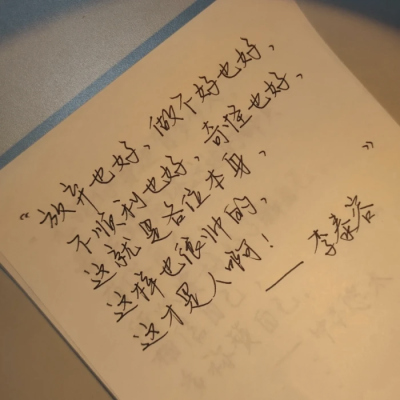 “放弃也好，做不好也好，
不顺利也好，奇怪也好，
这就是各位本身，
这样也很帅的，
这才是人啊！”
—— 李泰容